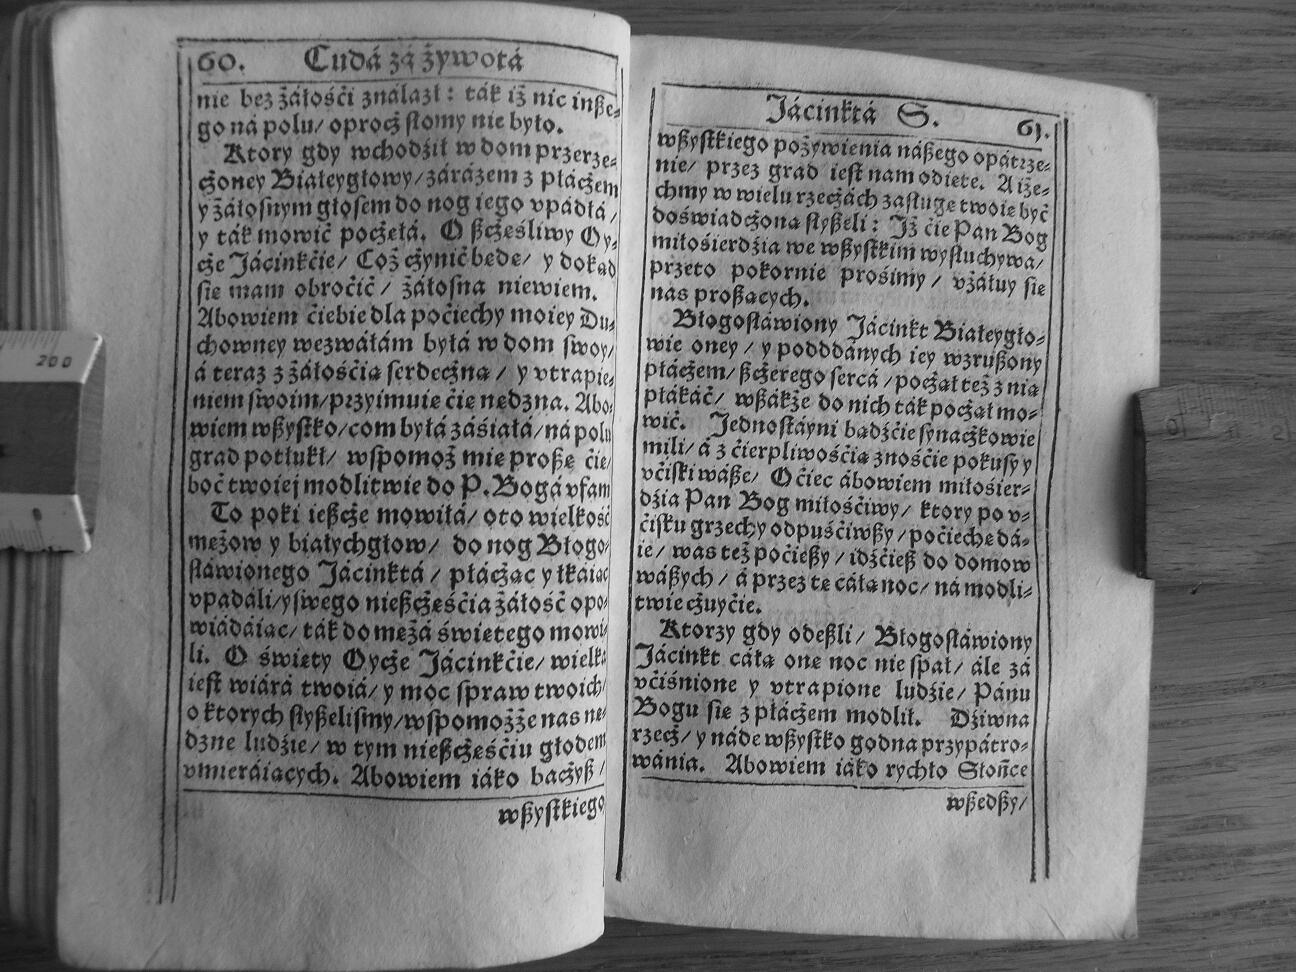 60. Cudá zá żywotá
nie bez żáłośći ználazł: ták iż nic insze-
go ná polu/ oprocż słomy nie było.
Ktory gdy wchodźił w dom przerze-
cżoney Białeygłowy/ zárázem z płácżem
y żáłosnym głosem do nog iego vpádłá/
y ták mowić pocżęłá. O szcżęśliwy Oy-
cże Jácinkćie/ Coż cżynić będę/ y dokąd
się mam obroćić/ żáłosna niewiem.
Abowiem ćiebie dla poćiechy moiey Du-
chowney wezwáłám byłá w dom swoy/
á teraz z żáłośćią serdecżną/ y vtrapie-
niem swoim/ przyimuię ćię nędzna. Abo-
wiem wszystko/ com byłá záśiałá/ ná polu
grad potłukł/ wspomoż mię proszę ćię/
boć twoiej modlitwie do P. Bogá vfam
To poki ieszcże mowiłá/ oto wielkość
mężow y białychgłow/ do nog Błogo-
słáwionego Jácinktá/ płácżąc y łkaiąc
vpadáli/ y swego nieszcżęśćia żáłość opo-
wiádáiąc/ ták do mężá świętego mowi-
li. O święty Oycże Jácinkćie/ wielka
iest wiárá twoiá/ y moc spraw twoich/
o ktorych słyszelismy/ wspomożże nas nę-
dzne ludźie/ w tym nieszcżęśćiu głodem
vmieráiących. Abowiem iáko bacżysz/
wszystkiego
Jácinktá S. 61.
wszystkiego pożywienia nászego opátrze-
nie/ przez grad iest nam odięte. A iże-
chmy w wielu rzecżách zasługę twoię być
doświadcżoną słyszeli: Iż ćię Pan Bog
miłośierdźia we wszystkim wysłuchywa/
przeto pokornie prośimy/ vżáłuy się
nas proszących.
Błogosłáwiony Jácinkt Białeygło-
wie oney/ y podddánych iey wzruszony
płácżem/ szcżerego sercá/ pocżął też z nią
płákáć/ wszákże do nich ták pocżął mo-
wić. Jednostáyni bądźćie synacżkowie
mili/ á z ćierpliwośćią znośćie pokusy y
vćiski wásze/ Oćiec ábowiem miłośier-
dźia Pan Bog miłośćiwy/ ktory po v-
ćisku grzechy odpuśćiwszy/ poćiechę dá-
ie/ was też poćieszy/ idźćiesz do domow
wászych/ á przez tę całą noc/ ná modli-
twie cżuyćie.
Ktorzy gdy odeszli/ Błogosłáwiony
Jácinkt całą onę noc nie spał/ ále zá
vćiśnione y vtrapione ludźie/ Pánu
Bogu się z płácżem modlił. Dźiwna
rzecż/ y náde wszystko godna przypátro-
wánia. Abowiem iáko rychło Słońce
wszedszy/
200
0
0
2